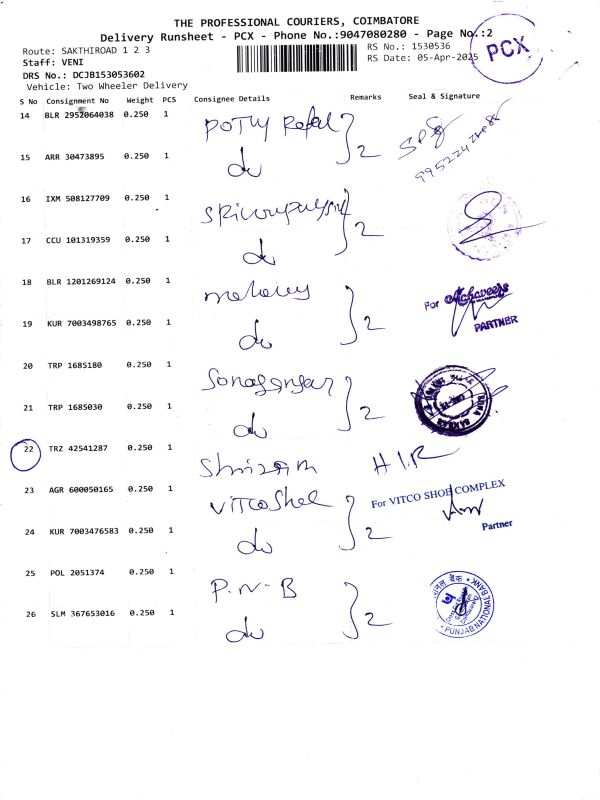 THE PROFESSIONAL COURIERS, COIMBATORE
Delivery Runsheet - PCX - Phone No.:9047080280 - Page No.:2
Route: SAKTHIROAD 1 2 3
RS No.: 1530536
Staff: VENI
RS Date: 05-Apr-2025
PCX
DRS No.: DCJB153053602
Vehicle: Two Wheeler Delivery
S No Consignment No Weight PCS Consignee Details Remarks Seal & Signature
14 BLR 2952064038 0.250 1
15 ARR 30473895 0.250 1 do 2
16 IXM 508127709 0.250 1
17 CCU 101319359 0.250 1 do 2
18 BLR 1201269124 0.250 1
For
PARTNER
19 KUR 7003498765 0.250 1 do 2
20 TRP 1685180 0.250 1
21 TRP 1685030 0.250 1 do 2
22 TRZ 42541287 0.250 1
23 AGR 600050165 0.250 1
For VITCO SHOE COMPLEX
Partner
24 KUR 7003476583 0.250 1 do 2
25 POL 2051374 0.250 1 P.N.B
26 SLM 367653016 0.250 1 do 2
PUNJAB NATIONAL BANK